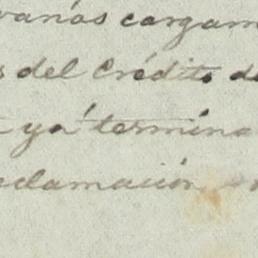 varios cargam
s del Crédito de
ya termina
clamación